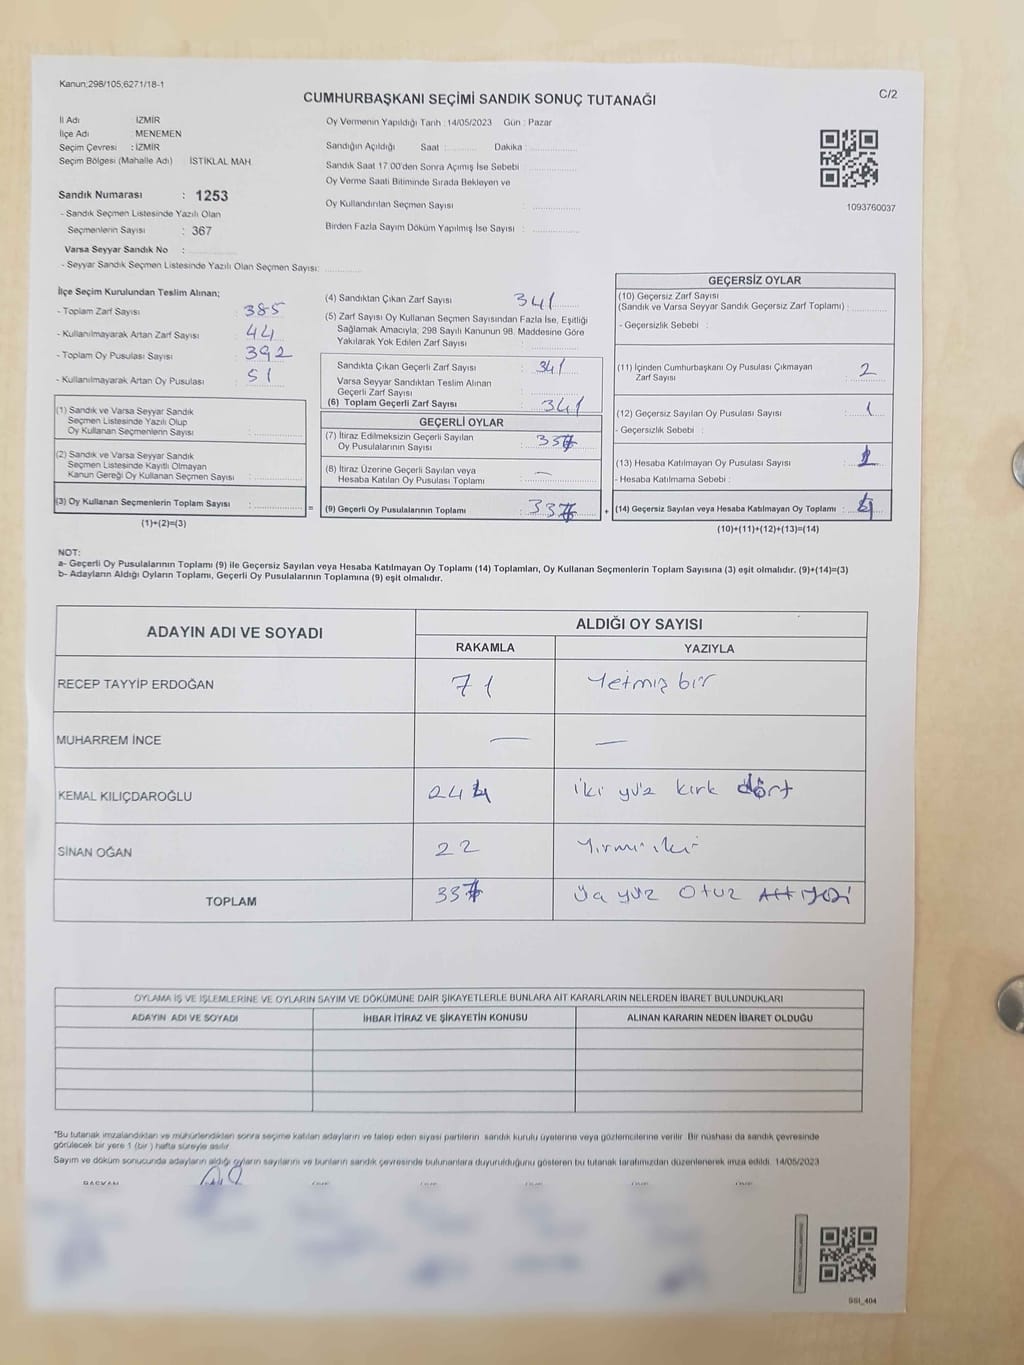 Kanun;298/105,6271/18-1
C/2
CUMHURBAŞKANI SEÇİMİ SANDIK SONUÇ TUTANAĞI
İl Adı : İZMİR
İlçe Adı : MENEMEN
Seçim Çevresi : İZMİR
Seçim Bölgesi (Mahalle Adı) İSTİKLAL MAH
Sandık Numarası : 1253
- Sandık Seçmen Listesinde Yazılı Olan
Seçmenlerin Sayısı : 367
Varsa Seyyar Sandık No :
- Seyyar Sandık Seçmen Listesinde Yazılı Olan Seçmen Sayısı:
Oy Vermenin Yapıldığı Tarih : 14/05/2023 Gün : Pazar
Sandığın Açıldığı Saat : Dakika :
Sandık Saat 17.00'den Sonra Açımış İse Sebebi
Oy Verme Saati Bitiminde Sırada Bekleyen ve
Oy Kullandırılan Seçmen Sayısı :
Birden Fazla Sayım Döküm Yapılmış İse Sayısı :
1093760037
İlçe Seçim Kurulundan Teslim Alınan;
- Toplam Zarf Sayısı : 385
- Kullanılmayarak Artan Zarf Sayısı : 44
- Toplam Oy Pusulası Sayısı : 392
- Kullanılmayarak Artan Oy Pusulası : 51
(1) Sandık ve Varsa Seyyar Sandık
Seçmen Listesinde Yazılı Olup
Oy Kullanan Seçmenlerin Sayısı :
(2) Sandık ve Varsa Seyyar Sandık
Seçmen Listesinde Kayıtlı Olmayan
Kanun Gereği Oy Kullanan Seçmen Sayısı :
(3) Oy Kullanan Seçmenlerin Toplam Sayısı : =
(1)+(2)=(3)
(4) Sandıktan Çıkan Zarf Sayısı 341
(5) Zarf Sayısı Oy Kullanan Seçmen Sayısından Fazla İse, Eşitliği
Sağlamak Amacıyla; 298 Sayılı Kanunun 98. Maddesine Göre
Yakılarak Yok Edilen Zarf Sayısı :
Sandıkta Çıkan Geçerli Zarf Sayısı : 341
Varsa Seyyar Sandıktan Teslim Alınan
Geçerli Zarf Sayısı :
(6) Toplam Geçerli Zarf Sayısı : 341
GEÇERLİ OYLAR
(7) İtiraz Edilmeksizin Geçerli Sayılan
Oy Pusulalarının Sayısı : 337
(8) İtiraz Üzerine Geçerli Sayılan veya
Hesaba Katılan Oy Pusulası Toplamı : —
(9) Geçerli Oy Pusulalarının Toplamı : 337 +
GEÇERSİZ OYLAR
(10) Geçersiz Zarf Sayısı
(Sandık ve Varsa Seyyar Sandık Geçersiz Zarf Toplamı) :
- Geçersizlik Sebebi :
(11) İçinden Cumhurbaşkanı Oy Pusulası Çıkmayan
Zarf Sayısı : 2
(12) Geçersiz Sayılan Oy Pusulası Sayısı : 1
- Geçersizlik Sebebi :
(13) Hesaba Katılmayan Oy Pusulası Sayısı : 1
- Hesaba Katılmama Sebebi :
(14) Geçersiz Sayılan veya Hesaba Katılmayan Oy Toplamı : 4
(10)+(11)+(12)+(13)=(14)
NOT:
a- Geçerli Oy Pusulalarının Toplamı (9) ile Geçersiz Sayılan veya Hesaba Katılmayan Oy Toplamı (14) Toplamları, Oy Kullanan Seçmenlerin Toplam Sayısına (3) eşit olmalıdır. (9)+(14)=(3)
b- Adayların Aldığı Oyların Toplamı, Geçerli Oy Pusulalarının Toplamına (9) eşit olmalıdır.
ADAYIN ADI VE SOYADI ALDIĞI OY SAYISI
RAKAMLA YAZIYLA
RECEP TAYYİP ERDOĞAN 71 Yetmiş bir
MUHARREM İNCE — —
KEMAL KILIÇDAROĞLU 244 iki yüz kırk dört
SİNAN OĞAN 22 Yirmi iki
TOPLAM 337 Üç yüz Otuz yedi
OYLAMA İŞ VE İŞLEMLERİNE VE OYLARIN SAYIM VE DÖKÜMÜNE DAİR ŞİKAYETLERLE BUNLARA AİT KARARLARIN NELERDEN İBARET BULUNDUKLARI
ADAYIN ADI VE SOYADI İHBAR İTİRAZ VE ŞİKAYETİN KONUSU ALINAN KARARIN NEDEN İBARET OLDUĞU
*Bu tutanak imzalandıktan ve mühürlendikten sonra seçime katılan adayların ve talep eden siyasi partilerin sandık kurulu üyelerine veya gözlemcilerine verilir. Bir nüshası da sandık çevresinde
görülecek bir yere 1 (bir) hafta süreyle asılır.
Sayım ve döküm sonucunda adayların aldığı oyların sayılarını ve bunların sandık çevresinde bulunanlara duyurulduğunu gösteren bu tutanak tarafımızdan düzenlenerek imza edildi. 14/05/2023
SSI_404